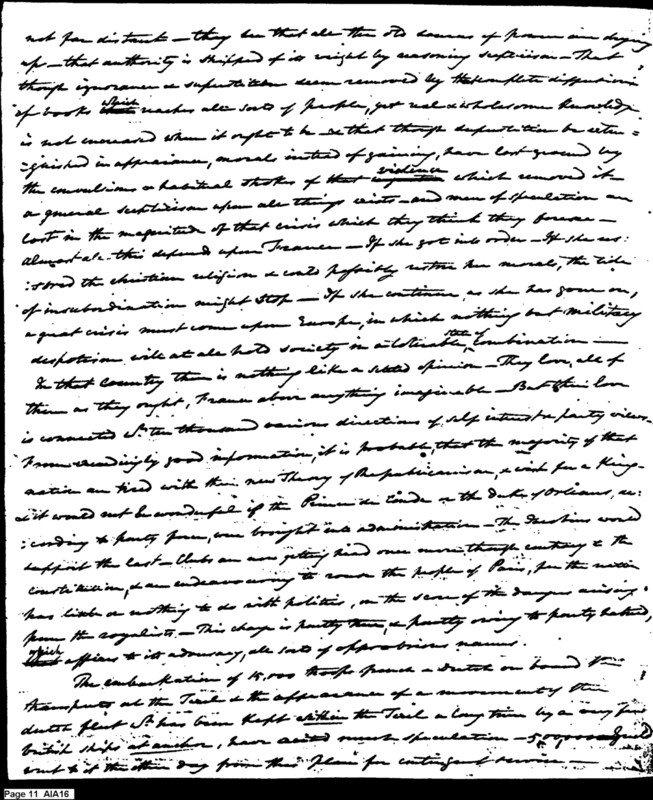 not far distant — they see that all the old sources of power are drying
up — that authority is stripped of its weight by reasoning scepticism — That
though ignorance & superstition seem removed by the complete diffusion
of books which reaches all sorts of people, yet real & wholesome knowledge
is not increased when it ought to be & that though superstition be extin=
=guished in appearance, morals instead of gaining, have lost ground by
the convulsions & habitual strokes of that violence which removed it
a general scepticism upon all things exists — and men of speculation are
lost in the magnitude of that crisis which they think they foresee —
Almost all this depends upon France — If she got into order — If she res:
:stored the christian religion & could possibly restore her morals, the tide
of insubordination might stop — If she continue, as she has gone on,
a great crisis must come upon Europe, in which nothing but military
despotism will at all hold society in a tolerable state of combination —
In that Country there is nothing like a settled opinion — They love, all of
them as they ought, France above anything imaginable — But their love
is connected wt. ten thousand various directions of self interest or party views.
From exceedingly good information, it is probable that the majority of that
nation are tired with their new Theory of Republicanism, & wish for a King —
& it would not be wonderful if the Prince de Condé or the duke of Orleans, ac:
:cording to party power, were brought into administration — The would
support the last — Clubs are now getting head once more though contrary to the
constitution, & are endeavouring to rouse the people of Paris, for the nation
has little or nothing to do with politics, on the score of the danger arising
from the royalists. — This charge is partly true, & partly owing to party hatred,
which affixes to its adversary, all sorts of opprobrious names.
The embarkation of 15,000 troops french & dutch on board the
transports at the Texel & the appearance of a movement of the
dutch fleet wt. has been kept within the Texel a long time by a very few
british ships at anchor, have excited much speculation —
went to it the other day from this place for contingent service —
Page 11 AIA16